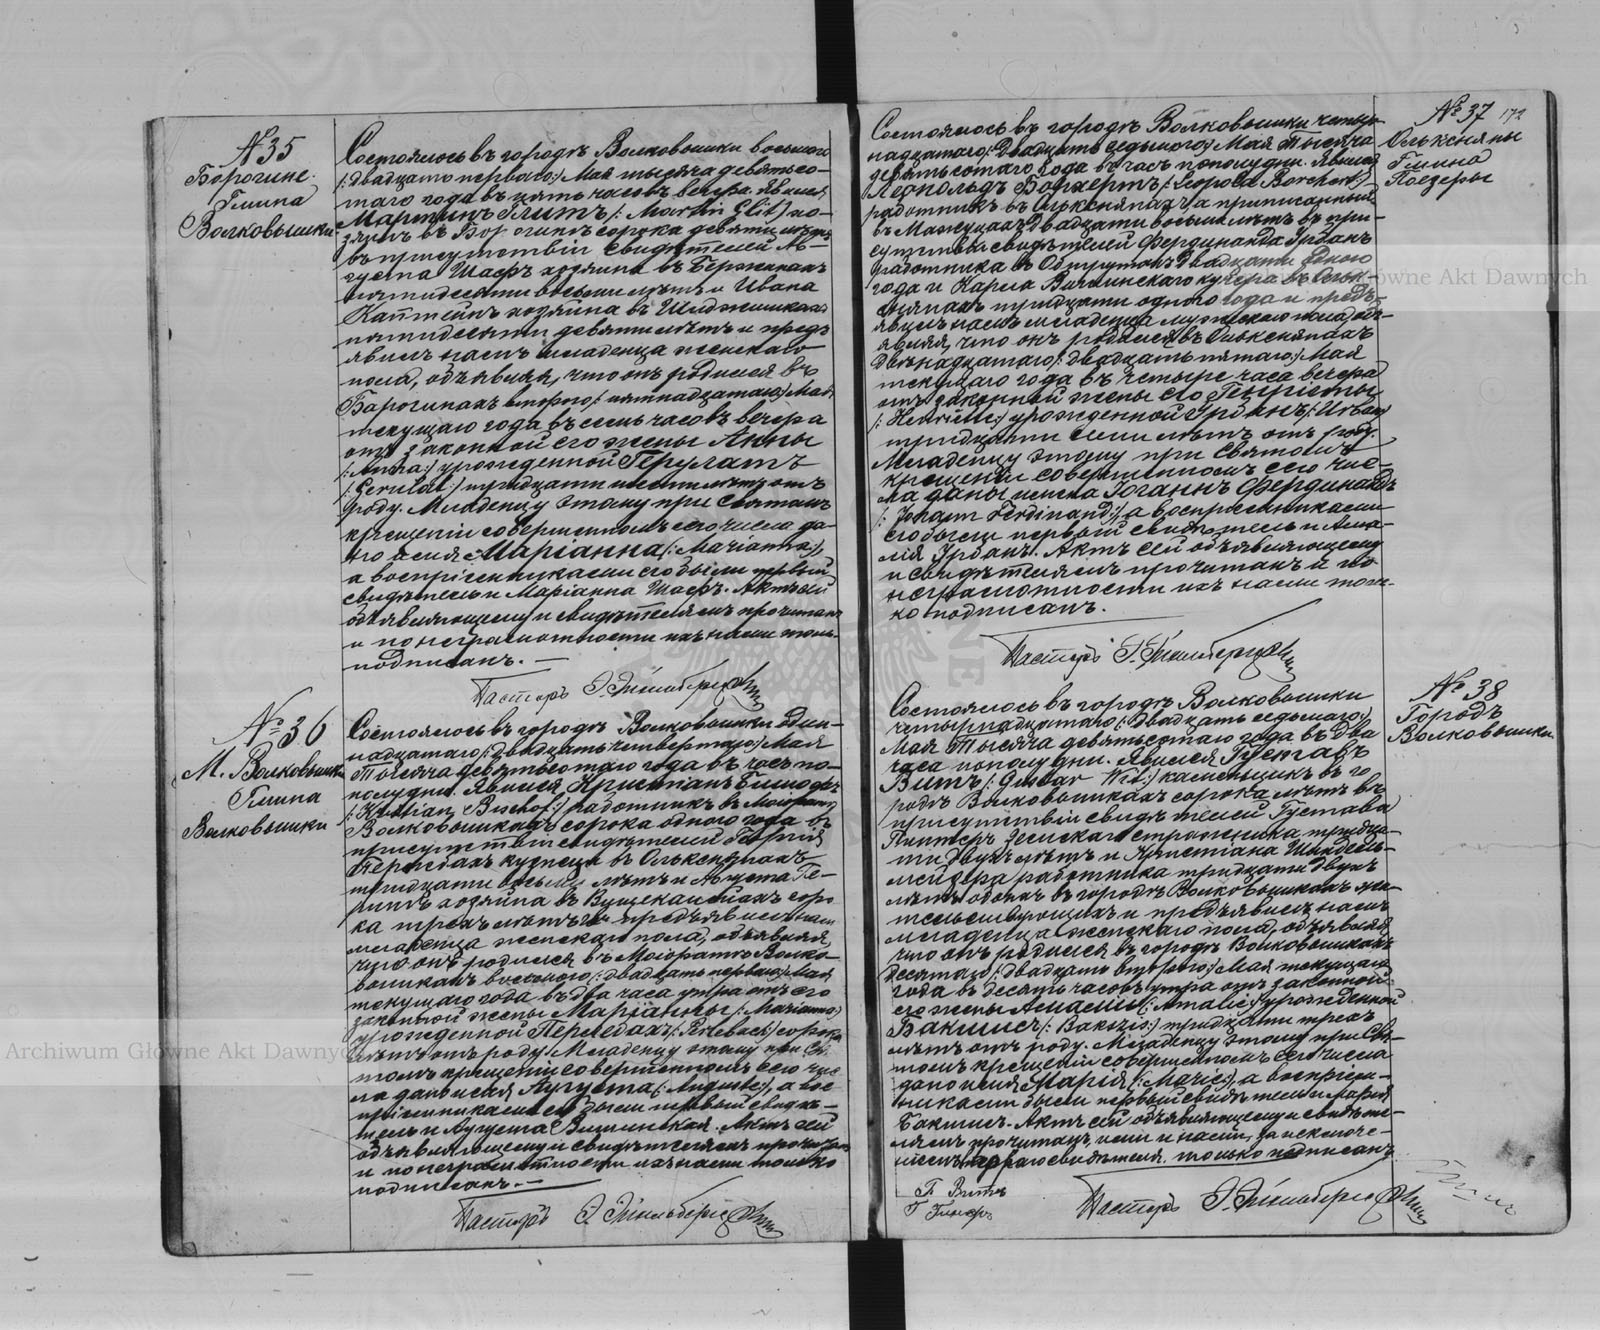 № 35
Борогине.
Гмина
Волковышки
Состоялось въ городѣ Волковышки восьмаго
/:двадцать перваго:/ Мая тысяча девятьсо-
таго года въ пять часовъ вечера. Явился
Мартинъ Глитъ /: Martin Glit:/ хо-
зяинъ въ сорока девяти лѣтъ
въ присутствіи свидѣтелей Ав-
густа Шаефъ хозяина въ
пятидесяти восьми лѣтъ и Ивана
хозяина въ
пятидесяти девяти лѣтъ и предъ
явилъ намъ младенца женскаго
пола, объявляя, что онъ родился въ
Борогинахъ втораго /: пятнадцатаго:/ Мая
текущаго года въ семь часовъ вечера
отъ законной его жены Анны
/: Anna:/ урожденной Герулатъ
/: Gerulat:/ тридцати шести лѣтъ отъ
роду. Младенцу этому при Святомъ
крещеніи совершенномъ сего числа да-
но имя Маріанна /: Marianna:/,
а воспріемниками его были первый
свидѣтель и Маріанна Шаефъ. Актъ сей
объявляющему и свидѣтелямъ прочитанъ
и по неграмотности ихъ нами только
подписанъ. —
Пасторъ
№ 36
М. Волковышки
Гмина
Волковышки
Состоялось въ городѣ Волковышки один-
надцатаго /: двадцать четвертаго:/ Мая
тысяча девятьсотаго года въ часъ по-
полудни. Явился Христіанъ Бишофъ
/: Kristian Bischof:/ работникъ въ
Волковышкахъ сорока одного года въ
присутствіи свидѣтелей Георгія
кузнеца въ Ольксняпахъ
тридцати восьми лѣтъ и Августа Ге-
хозяина въ соро
ка трехъ лѣтъ и предъявилъ намъ
младенца женскаго пола, объявляя,
что онъ родился въ Маіоратъ Волко-
вышкахъ восьмаго /: двадцать перваго:/ Мая
текущаго года въ два часа утра отъ его
законной жены Маріанны /: Marianna:/
урожденной сорока
лѣтъ отъ роду. Младенцу этому при Свя-
томъ крещеніи совершенномъ сего чис
ла дано имя Аугуста /: Auguste:/, а вос
пріемниками его были первый свидѣ-
тель и Аугуста Вишинская. Актъ сей
объявляющему и свидѣтелямъ прочитанъ
и по неграмотности ихъ нами только
подписанъ. —
Пасторъ
№ 37 172
Ольксняны
Гмина
Поезеры
Состоялось въ городѣ Волковышки четыр-
надцатаго /: двадцать седьмаго:/ Мая тысяча
девятьсотаго года въ часъ пополудни. Явился
Леопольдъ Борхертъ /: Leopold Borchert:/
работникъ въ Ольксняпахъ а приписанный
въ двадцати восьми лѣтъ въ при-
сутствіи свидѣтелей Фердинанда Урбанъ
работника въ двадцати одного
года и Карла Вишинскаго кучера въ Ольк-
сняпахъ тридцати одного года и предъ-
явилъ намъ младенца мужескаго пола, объ-
являя, что онъ родился въ Ольксняпахъ
двѣнадцатаго /: двадцать пятаго:/ Мая
текущаго года въ четыре часа вечера
отъ законной жены его Генріеты
/: Henriette:/ урожденной Урбанъ /: Urban:/
тридцати семи лѣтъ отъ роду.
Младенцу этому при Святомъ
крещеніи совершенномъ сего чис-
ла даны имена Іоганнъ Фердинандъ
/: Johann Ferdinand:/, а воспріемниками
его были первый свидѣтель и Ама-
лія Урбанъ. Актъ сей объявляющему
и свидѣтелямъ прочитанъ и по
неграмотности ихъ нами толь-
ко подписанъ.
Пасторъ
№ 38
Городъ
Волковышки
Состоялось въ городѣ Волковышки
четырнадцатаго /: двадцать седьмаго:/
Мая тысяча девятьсотаго года въ два
часа пополудни. Явился Густавъ
Витъ /: Gustav Wit:/ каменьщикъ въ го
родѣ Волковышкахъ сорока лѣтъ въ
присутствіи свидѣтелей Густава
Гинтеръ земскаго стражника тридца-
ти двухъ лѣтъ и Христіана Шиндель-
мейзера работника тридцати двухъ
лѣтъ обоихъ въ городѣ Волковышкахъ жи-
тельствующихъ и предъявилъ намъ
младенца женскаго пола, объявляя,
что онъ родился въ городѣ Волковышкахъ
десятаго /: двадцать втораго:/ Мая текущаго
года въ десять часовъ утра отъ законной
его жены Амаліи /: Amalie:/ урожденной
Бакшисъ /: Bakszis:/ тридцати трехъ
лѣтъ отъ роду. Младенцу этому при Свя-
томъ крещеніи совершенномъ сего числа
дано имя Марія /: Marie:/, а воспріем-
никами были первый свидѣтель и Марія
Бакшисъ. Актъ сей объявляющему и свидѣте-
лямъ прочитанъ, ими и нами, за исключе-
ніемъ свидѣтеля, только подписанъ
Г. Витъ
Г. Гинтеръ
Пасторъ
Archiwum Główne Akt Dawnych
Główne Akt Dawnych